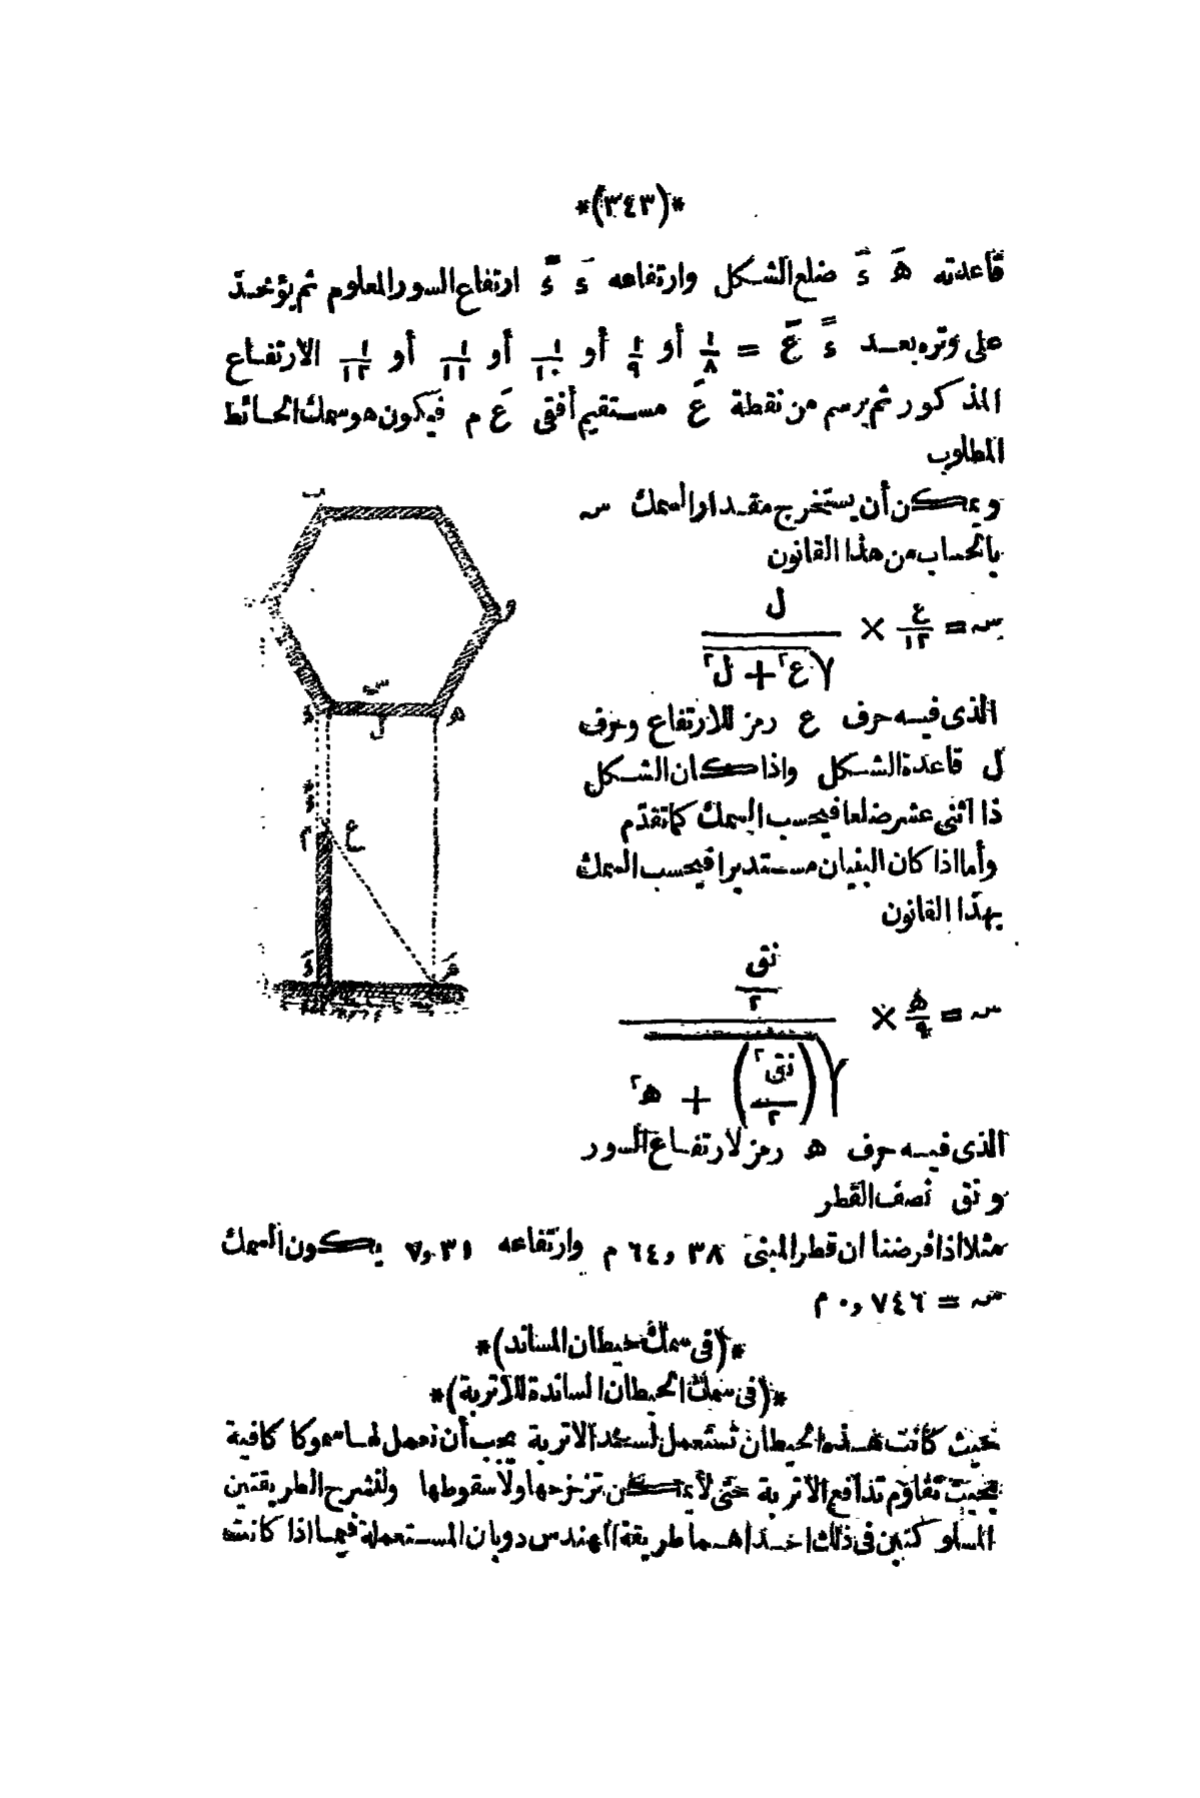 *(٣٤٣)*
قاعدته هَ دَ ضلع الشكل وارتفاعه دَ دً ارتفاع السور المعلوم ثم يؤخذ
على وتره بعد دً عَ = ١/٨ أو ١/٩ أو ١/١٠ أو ١/١١ أو ١/١٢ الارتفاع
المذكور ثم يرسم من نقطة عَ مستقيم أفقى عَ م فيكون هو سمك الحائط
المطلوب
ويمكن أن يستخرج مقدار السمك س
بالحساب من هذا القانون
س = ع/١٢ × ل / √(ع٢ + ل٢)
الذى فيه حرف ع رمز للارتفاع وحرف
ل قاعدة الشكل واذا كان الشكل
ذا اثنى عشر ضلعا فيحسب السمك كما تقدّم
وأما اذا كان البنيان مستديرا فيحسب السمك
بهذا القانون
س = ه/٩ × (نق/٢) / √((نق٢/٢) + ه٢)
الذى فيه حرف ه رمز لارتفاع السور
و نق نصف القطر
مثلا اذا فرضنا ان قطر المبنى ٣٨ و ٦٤ م وارتفاعه ٣١ و ٧ يكون السمك
س = ٧٤٦ و ٠ م
*(فى سمك حيطان المساند)*
*(فى سمك الحيطان الساندة للاتربة)*
حيث كانت هذه الحيطان تستعمل لسند الاتربة يجب أن نعمل لها سموكا كافية
بحيث تقاوم تدافع الاتربة حتى لا يمكن تزحزحها ولا سقوطها ولنشرح الطريقتين
المسلوكتين فى ذلك احداهما طريقة المهندس دوبان المستعملة فيما اذا كانت
ب
و
س
د
ل
ه
دً
م
ع
دَ
هَ